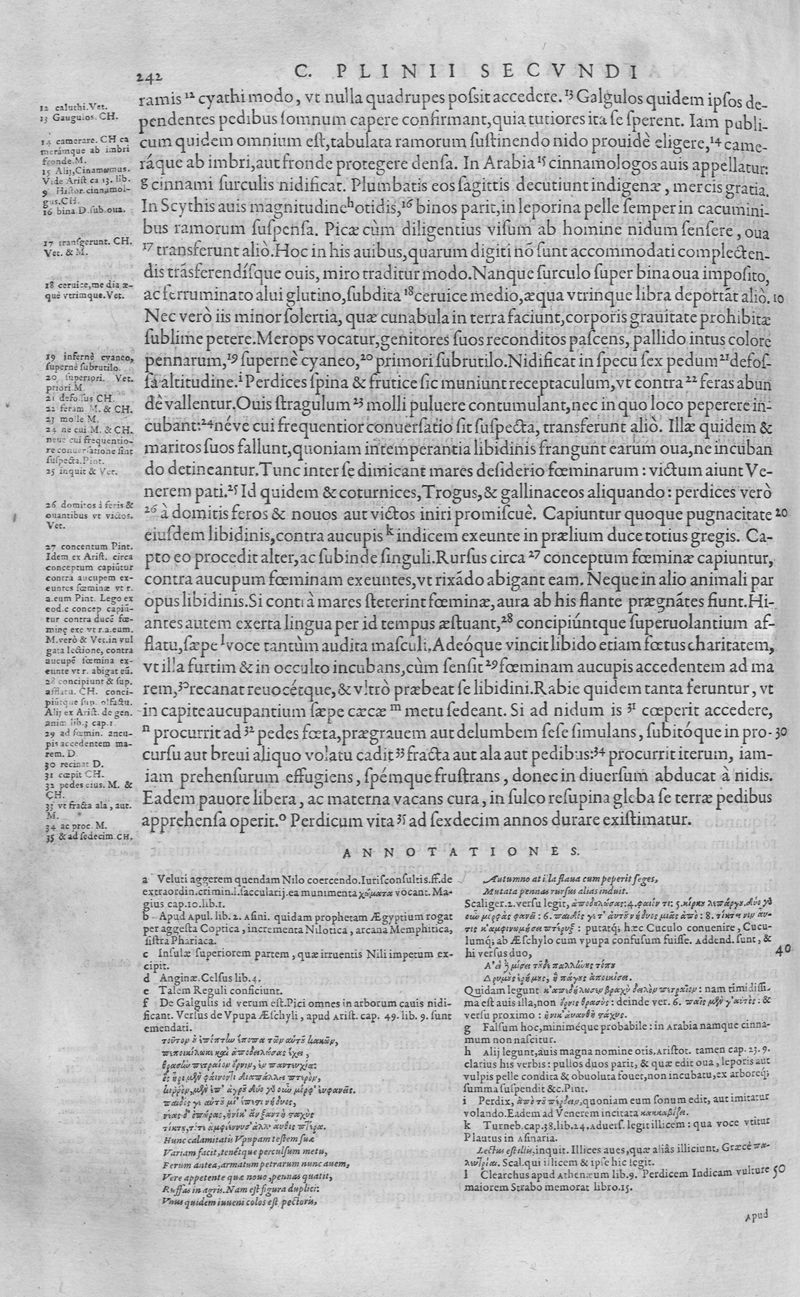 242
C. PLINII SECVNDI
ramis ¹² cyathi modo, vt nulla quadrupes poſsit accedere. ¹³ Galgulos quidem ipſos de-
pendentes pedibus ſomnum capere confirmant, quia tutiores ita ſe ſperent. Iam publi-
cum quidem omnium eſt, tabulata ramorum ſuſtinendo nido prouidè eligere, ¹⁴ came-
ráque ab imbri, aut fronde protegere denſa. In Arabia ¹⁵ cinnamologos auis appellatur:
g cinnami ſurculis nidificat. Plumbatis eos ſagittis decutiunt indigenæ, mercis gratia.
In Scythis auis magnitudine ʰ otidis, ¹⁶ binos parit, in leporina pelle ſemper in cacumini-
bus ramorum ſuſpenſa. Picæ cùm diligentius viſum ab homine nidum ſenſere, oua
¹⁷ transferunt aliò. Hoc in his auibus, quarum digiti nō ſunt accommodati complecten-
dis trāsferendíſque ouis, miro traditur modo. Nanque ſurculo ſuper bina oua impoſito,
ac ferruminato alui glutino, ſubdita ¹⁸ ceruice medio, æqua vtrinque libra deportāt aliò. 10
Nec verò iis minor ſolertia, quæ cunabula in terra faciunt, corporis grauitate prohibitæ
ſublime petere. Merops vocatur, genitores ſuos reconditos paſcens, pallido intus colore
pennarum, ¹⁹ ſupernè cyaneo, ²⁰ primori ſubrutilo. Nidificat in ſpecu ſex pedum ²¹ defoſ-
ſa altitudine. ⁱ Perdices ſpina & frutice ſic muniunt receptaculum, vt contra ²² feras abun
dè vallentur. Ouis ſtragulum ²³ molli puluere contumulant, nec in quo loco peperere in-
cubant: ²⁴ néve cui frequentior conuerſatio ſit ſuſpecta, transferunt aliò. Illæ quidem &
maritos ſuos fallunt, quoniam intemperantia libidinis frangunt earum oua, ne incuban
do detineantur. Tunc inter ſe dimicant mares deſiderio fœminarum: victum aiunt Ve-
nerem pati. ²⁵ Id quidem & coturnices, Trogus, & gallinaceos aliquando: perdices verò
²⁶ à domitis feros & nouos aut victos iniri promiſcuè. Capiuntur quoque pugnacitate 20
eiuſdem libidinis, contra aucupis ᵏ indicem exeunte in prælium duce totius gregis. Ca-
pto eo procedit alter, ac ſubinde ſinguli. Rurſus circa ²⁷ conceptum fœminæ capiuntur,
contra aucupum fœminam exeuntes, vt rixādo abigant eam. Neque in alio animali par
opus libidinis. Si contrà mares ſteterint fœminæ, aura ab his flante prægnātes fiunt. Hi-
antes autem exerta lingua per id tempus æſtuant, ²⁸ concipiúntque ſuperuolantium af-
flatu, ſæpe ˡ voce tantùm audita maſculi. Adeóque vincit libido etiam fœtus charitatem,
vt illa furtim & in occulto incubans, cùm ſenſit ²⁹ fœminam aucupis accedentem ad ma
rem, ³⁰ recanat reuocétque, & vltrò præbeat ſe libidini. Rabie quidem tanta feruntur, vt
in capite aucupantium ſæpe cæcæ ᵐ metu ſedeant. Si ad nidum is ³¹ cœperit accedere,
ⁿ procurrit ad ³² pedes fœta, prægrauem aut delumbem ſeſe ſimulans, ſubitóque in pro- 30
curſu aut breui aliquo volatu cadit ³³ fracta aut ala aut pedibus: ³⁴ procurrit iterum, iam-
iam prehenſurum effugiens, ſpémque fruſtrans, donec in diuerſum abducat à nidis.
Eadem pauore libera, ac materna vacans cura, in ſulco reſupina gleba ſe terræ pedibus
apprehenſa operit. ᵒ Perdicum vita ³⁵ ad ſexdecim annos durare exiſtimatur.
12 caluthi. Vet.
13 Gauguios. CH.
14 camerare. CH ea
merámque ab imbri
fronde. M.
15 Alij, Cinamomus.
Vide Ariſt ca 13. lib.
9. Heſtor. cinnamol-
gus. CH.
16 bina. D. ſub. oua.
17 tranſgerunt. CH.
Vet. & M.
18 ceruice, me dia æ-
què vtrimque. Vet.
19 infernè cyaneo,
ſupernè ſubrutilo.
20 ſuperiori. Vet.
priori M.
21 defoſſus CH.
22 feram. M. & CH.
23 molle M.
24 ne cui M. & CH.
neue cui frequentio-
re conuerſatione ſint
ſuſpecta. Pint.
25 inquit & Vet.
26 domitos à feris &
ouantibus vt victos.
Vet.
27 concentum Pint.
Idem ex Ariſt. circa
conceptum capiūtur
contra aucupem ex-
euntes fœminæ vt r.
a. eum Pint. Lego ex
eod. c concep capiū-
tur contra ducē fœ-
minę exe vt r. a. eum.
M. verò & Vet. in vul
gata lectione, contra
aucupē fœmina ex-
eunte vt r. abigat eā.
28 concipiunt & ſup.
afflatu. CH. conci-
piúntque ſup. olfactu.
Alij ex Ariſt. de gen.
anim lib. 3 cap. 1.
29 ad fœmin. aucu-
pis accedentem ma-
rem. D.
30 recinat D.
31 cœpit CH.
32 pedes eius. M. &
CH.
33 vt fracta ala, aut.
M.
34 ac proc. M.
35 & ad ſedecim. CH.
ANNOTATIONES.
a Veluti aggerem quendam Nilo coercendo. Iuriſconſultis. ff. de
extraordin. crimin. l. ſaccularij. ea munimenta χώματα vocant. Ma-
gius cap. 10. lib. 1.
b Apud Apul. lib. 2. Aſini. quidam prophetam Ægyptium rogat
per aggeſta Coptica, incrementa Nilotica, arcana Memphitica,
ſiſtra Phariaca.
c Inſulæ ſuperiorem partem, quæ irruentis Nili impetum ex-
cipit.
d Anginæ. Celſus lib. 4.
e Talem Reguli conficiunt.
f De Galgulis id verum eſt. Pici omnes in arborum cauis nidi-
ficant. Verſus de Vpupa Æſchyli, apud Ariſt. cap. 49. lib. 9. ſunt
emendati.
Hunc calamitatis Vpupam teſtem ſuæ
Variam facit, tenétque perculſum metu,
Ferum antea, armatum petrarum nunc auem,
Vere appetente quæ nouo, pennas quatit,
Ruffas in agris. Nam eſt figura duplici:
Vnus quidem iuueni colos eſt pectoris,
Autumno at illa flaua cum peperit ſeges,
Mutata pennas rurſus alias induit.
Scaliger. 2. verſu legit,
putatq; hæc Cuculo conuenire, Cucu-
lumq; ab Æſchylo cum vpupa confuſum fuiſſe. Addend. ſunt, & 40
hi verſus duo,
Quidam legunt
nam timidiſſi-
ma eſt auis illa, non
deinde ver. 6.
verſu proximo:
g Falſum hoc, miniméque probabile: in Arabia namque cinna-
mum non naſcitur.
h Alij legunt, auis magna nomine otis. Ariſtot. tamen cap. 23. 9.
clarius his verbis: pullos duos parit, & quæ edit oua, leporis aut
vulpis pelle condita & obuoluta fouet, non incubatu, ex arboreq;
ſumma ſuſpendit &c. Pint.
i Perdix,
quoniam eum ſonum edit, aut imitatur
volando. Eadem ad Venerem incitata
k Turneb. cap. 38. lib. 24. Aduerſ. legit illicem: qua voce vtitur
Plautus in Aſinaria.
Lectus eſt illix, inquit. Illices aues, quæ aliàs illiciunt, Græcè
Scal. qui illicem & ipſe hic legit.
l Clearchus apud Athenæum lib. 9. Perdicem Indicam vulture 50
maiorem Strabo memorat libro. 15.
Apud